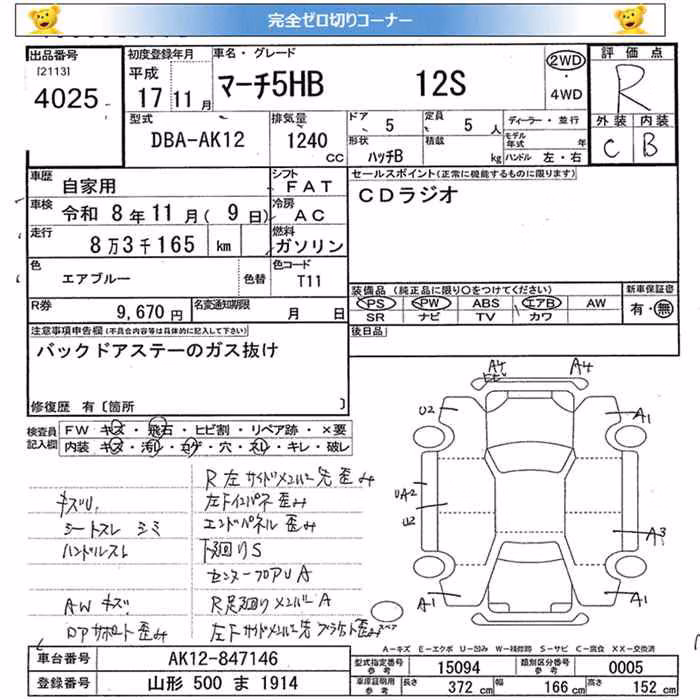 完全ゼロ切りコーナー
出品番号 初度登録年月 車名・グレード 評価点
[2113] 平成 マーチ5HB 12S 2WD ・ 4WD R
4025 17年11月
型式 排気量 ドア 5 定員 5人 ディーラー・並行 外装 内装
DBA-AK12 1240cc 形状 ハッチB 積載 kg モデル年式 年 C B
ハンドル 左・右
車歴 自家用 シフト FAT セールスポイント(正常に機能するものに限ります)
車検 令和 8年11月(9日) 冷房 AC CDラジオ
走行 8万3千165 km 燃料 ガソリン
色 エアブルー 色替 色コード T11
装備品(純正品に限り○をつけてください) 新車保証書
R券 9,670円 名変通知期限 月 日 PS PW ABS エアB AW 有・無
SR ナビ TV カワ
注意事項申告欄(不具合内容等は具体的に記入して下さい) 後日品
バックドアステーのガス抜け
修復歴 有〔箇所 〕
検査員記入欄 FW キズ・飛石・ヒビ割・リペア跡・×要
内装 キズ・汚レ・コゲ・穴・スレ・キレ・破レ
R左サイドメンバー先歪み
キズU. 左Fインパネ歪み
シートスレ シミ エンドパネル歪み
ハンドルスレ 下廻りS
センターフロアUA
AWキズ R足廻りメンバーA
左Fサイドメンバー先ブラケット歪み
A4 A4
U2 A1
UA2
U2 A3
A1 A1
スペア
A-キズ E-エクボ U-凹み W-補修跡 S-サビ C-腐食 XX-交換済
車台番号 AK12-847146 型式指定番号 参考 15094 類別区分番号 参考 0005
登録番号 山形 500 ま 1914 車庫証明用 参考 長さ 372cm 幅 166cm 高さ 152cm